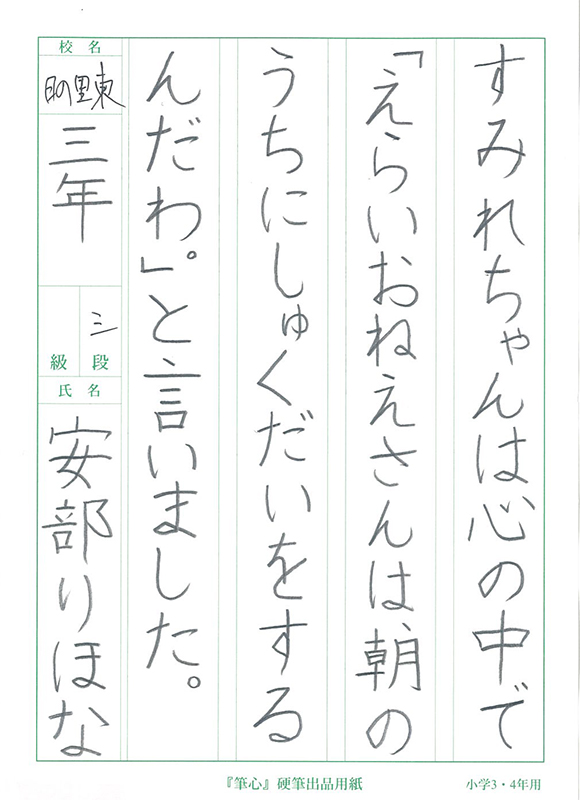 すみれちゃんは心の中で
「えらいおねえさんは、朝の
うちにしゅくだいをする
んだわ。」と言いました。
校名
日の里東
三年
三
段
級
氏名
安部りほな
『筆心』硬筆出品用紙
小学3・4年用